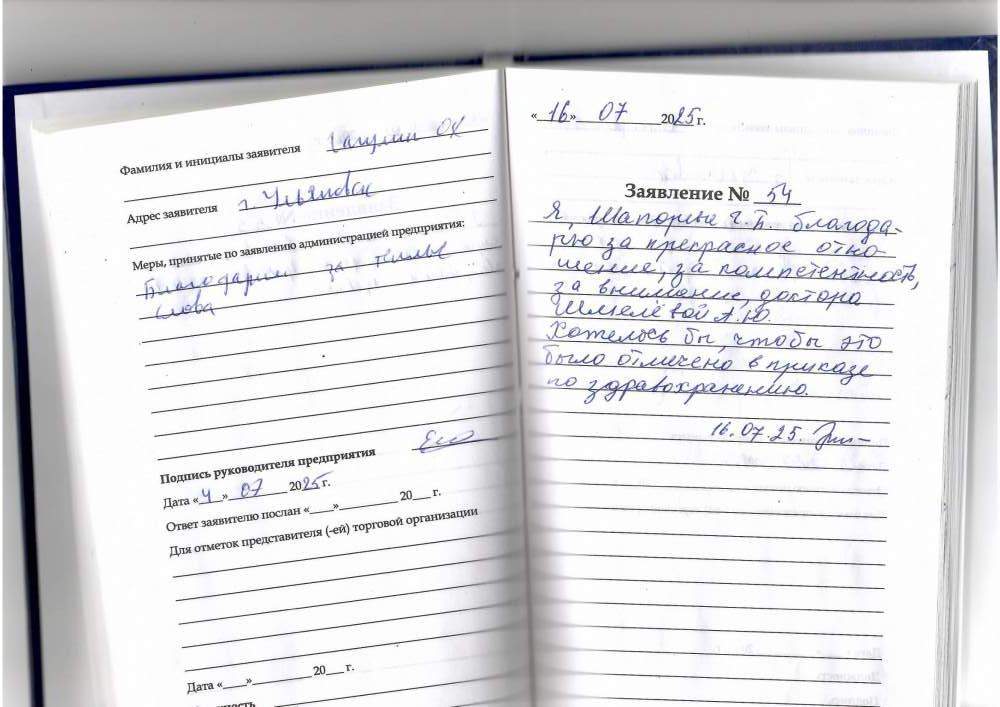 Фамилия и инициалы заявителя
Адрес заявителя г. Ульяновск
Меры, принятые по заявлению администрацией предприятия:
Благодарим за теплые
слова
Подпись руководителя предприятия
Дата «4» 07 2025 г.
Ответ заявителю послан «____»__________ 20___ г.
Для отметок представителя (-ей) торговой организации
Дата «____»__________ 20___ г.
«16» 07 2025 г.
Заявление № 54
Я, Шапорин Г.П. благода-
рю за прекрасное отно-
шение, за компетентность,
за внимание, доктора
Шмелёвой А.Ю.
Хотелось бы, чтобы это
было отмечено в приказе
по здравохранению.
16.07.25.